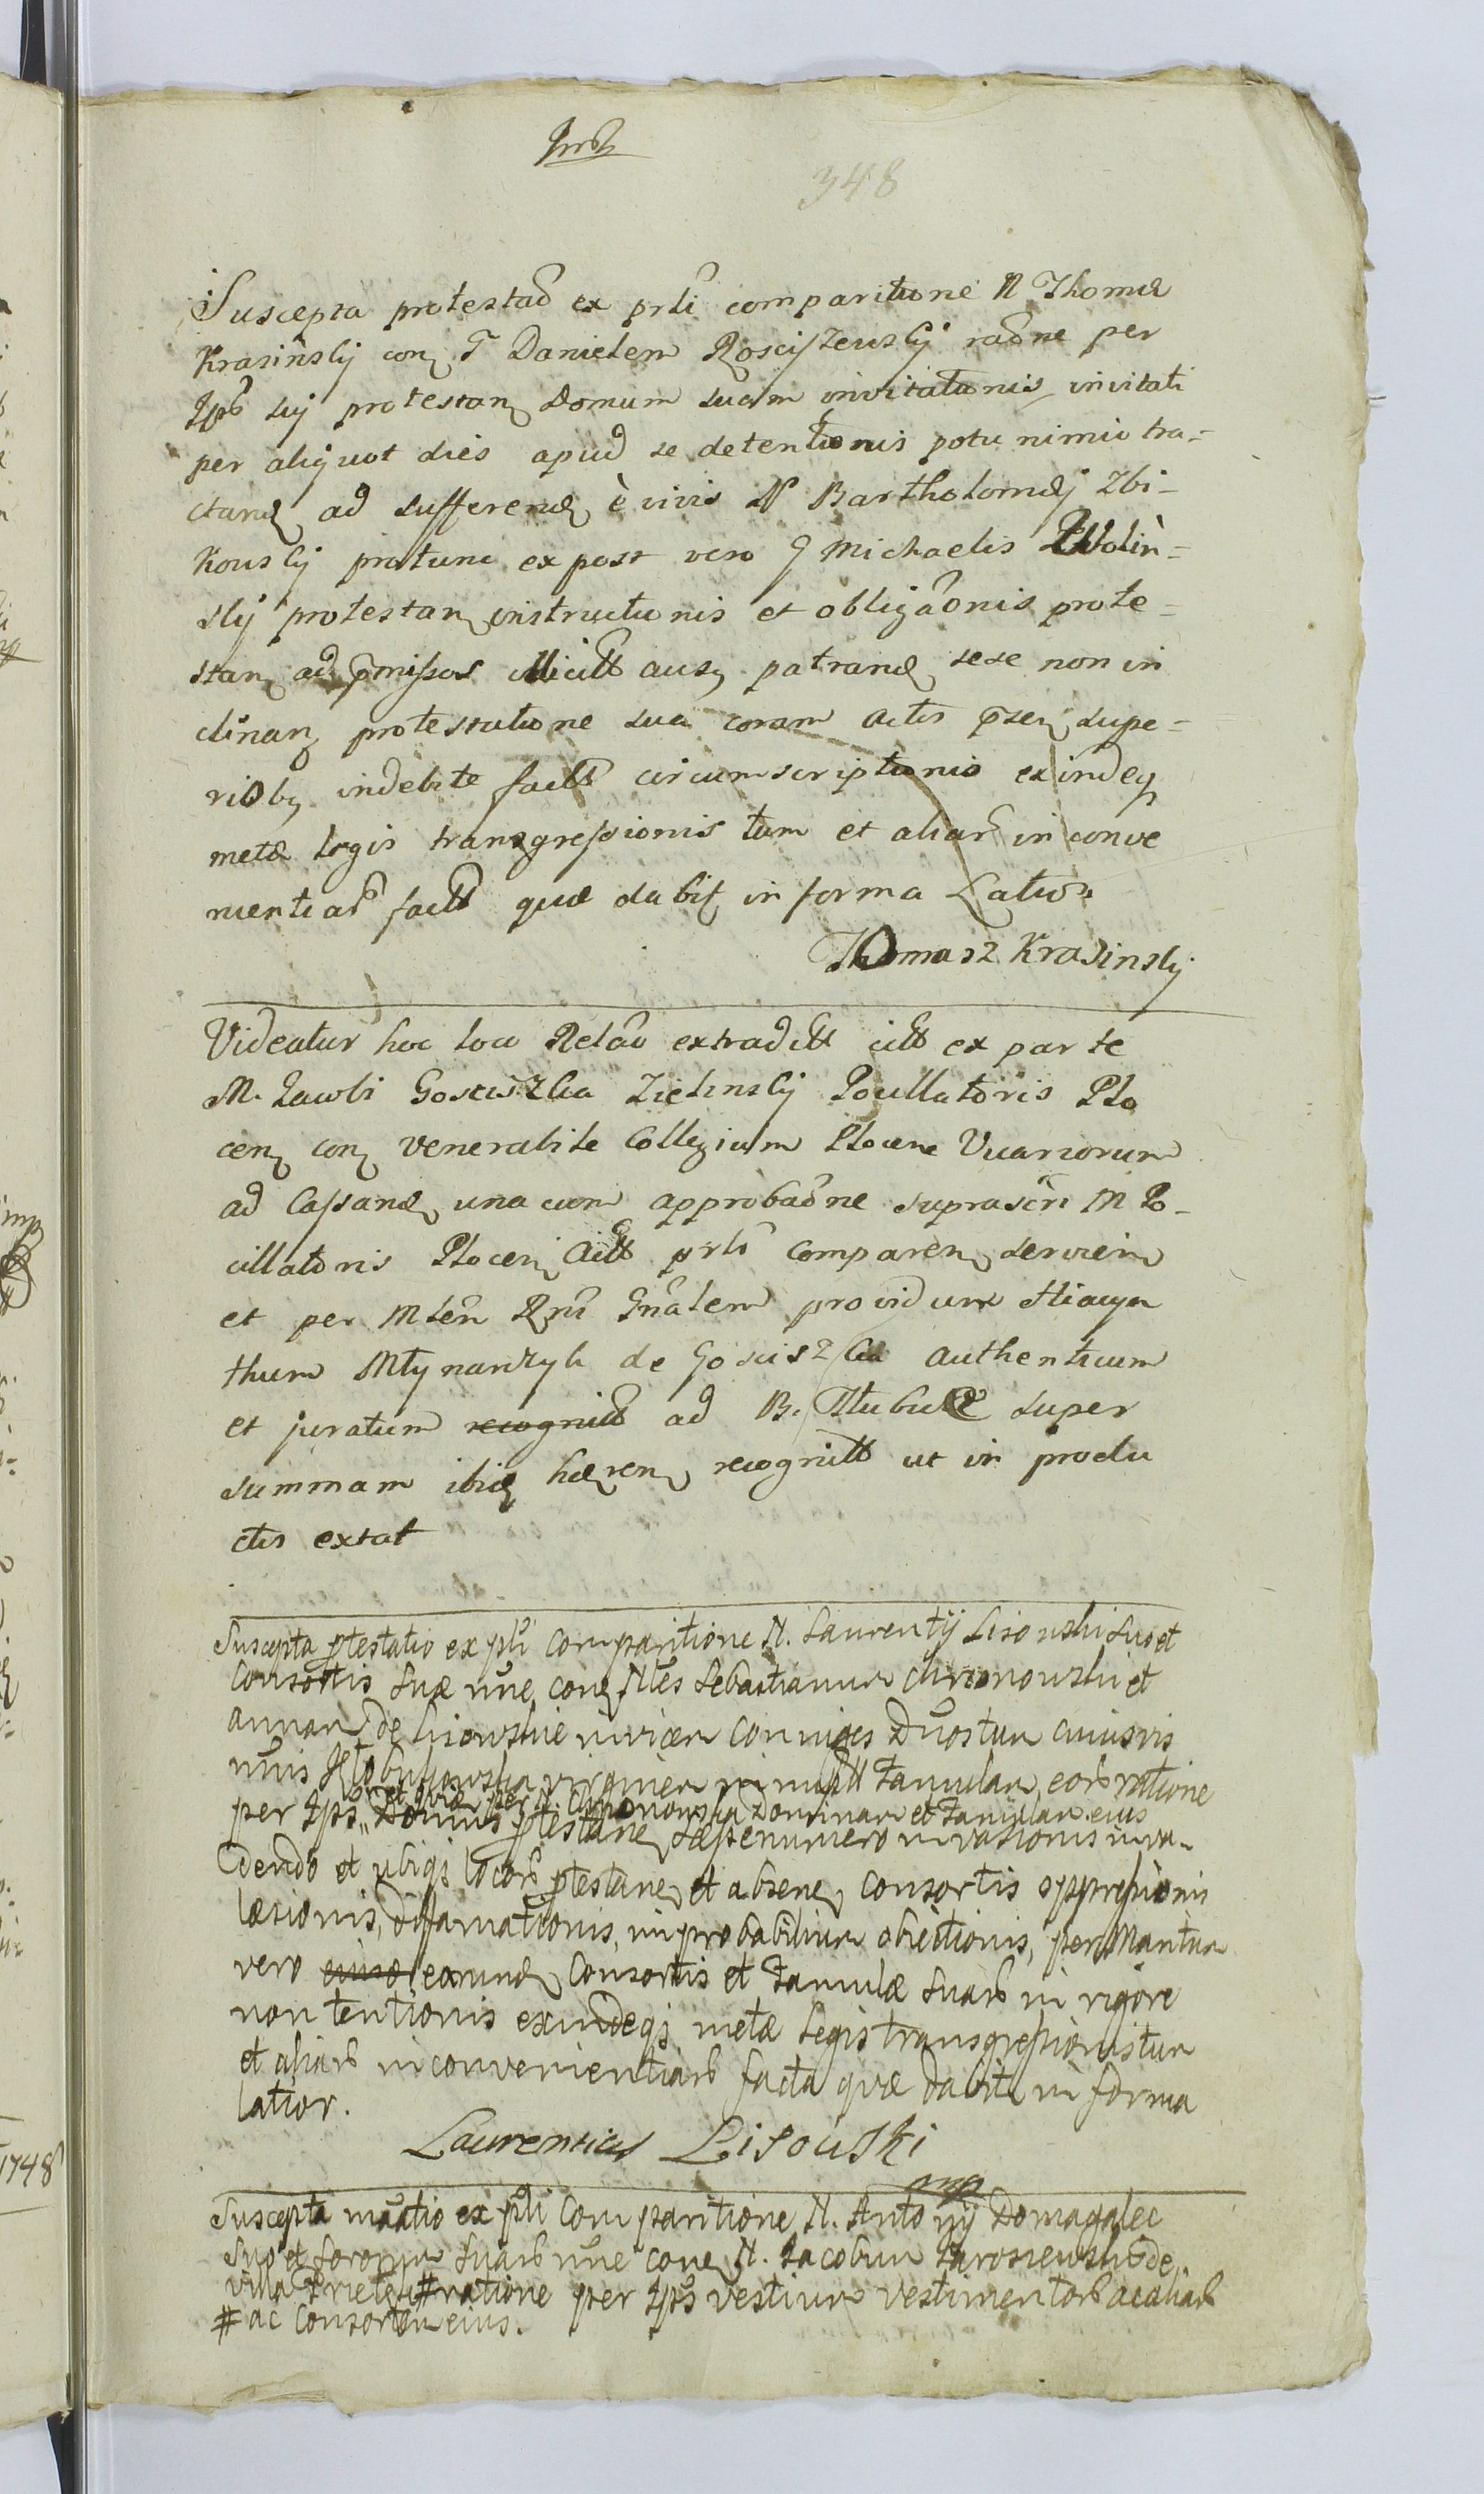 348
Suscepta protestaõ ex prti comparitione N Thomæ
Krasinskÿ con T Danielem Rosciszewskÿ raõne per
Ips suÿ protestan Domum suam invitationis invitati
per aliquot dies apud se detentionis potu nimio tra=
ctand ad sufferend è vivis N Bartholomæj Zbi=
kowskÿ protunc ex post vero G Michaelis Wolin=
skÿ protestan instructionis et obligaõnis prote=
stan ad p̃missos illicitt aus patrand sese non in
clinan protestatione sua coram actis p̃sen supe=
riob indebite factt circumscriptionis exindeq
metæ legis transgressionis tum et aliar inconve
nientiar factt quæ dabit in forma Latior
Thomasz Krasinsky
Videatur hoc loco Relaõ extraditt citt ex parte
M. Jacobi Gosciszka Zielinskÿ Pocillatoris Plo
cen con venerabile Collegium Plocen Vicariorum
ad Cassand una cum approbaõne suprascri M Po=
cillatoris Plocen Actt prti comparen servien
et per Mlen Rni Gnalem providum Hiacyn
thum Młynarczyk de Gosciszka authenticum
et juratum recognitt ad B. super
summam ibid hæren recognitt ut in produ
ctis extat
Suscepta ptestatio ex pti comparitione N. Laurentÿ Lisowski suo et
Consortis suæ nne con Nles Sebastianum Chronowski et
annam de Lisowskie invicem conniges Duos tum cuiusvis
nnis virginem famulam eors ratione
et quid per N. Chronowska Dominam et famulam eius
per Ips Domus ptestane sæpenumero invasionis inva-
dendo et ubiqs locors ptestane et absene consortis oppressionis
læsionis, difamationis, improbabilium obiectionis, per Maritum
vero eiusd earund Consortis et famulæ suars in rigore
non tentionis exindeqs metæ Legis transgressionis tum
et aliars inconvenientiars facta quæ dabit in forma
latior.
Laurentius Lisouski
mp
Suscepta mãatio ex pti comparitione N. Antonÿ Domagalec
suo et sororum suars nne cone N. Jacobum Jarosiewski de
villa # ratione per Ips vestium vestimentors ac aliars
# ac Consortem eius.
1748